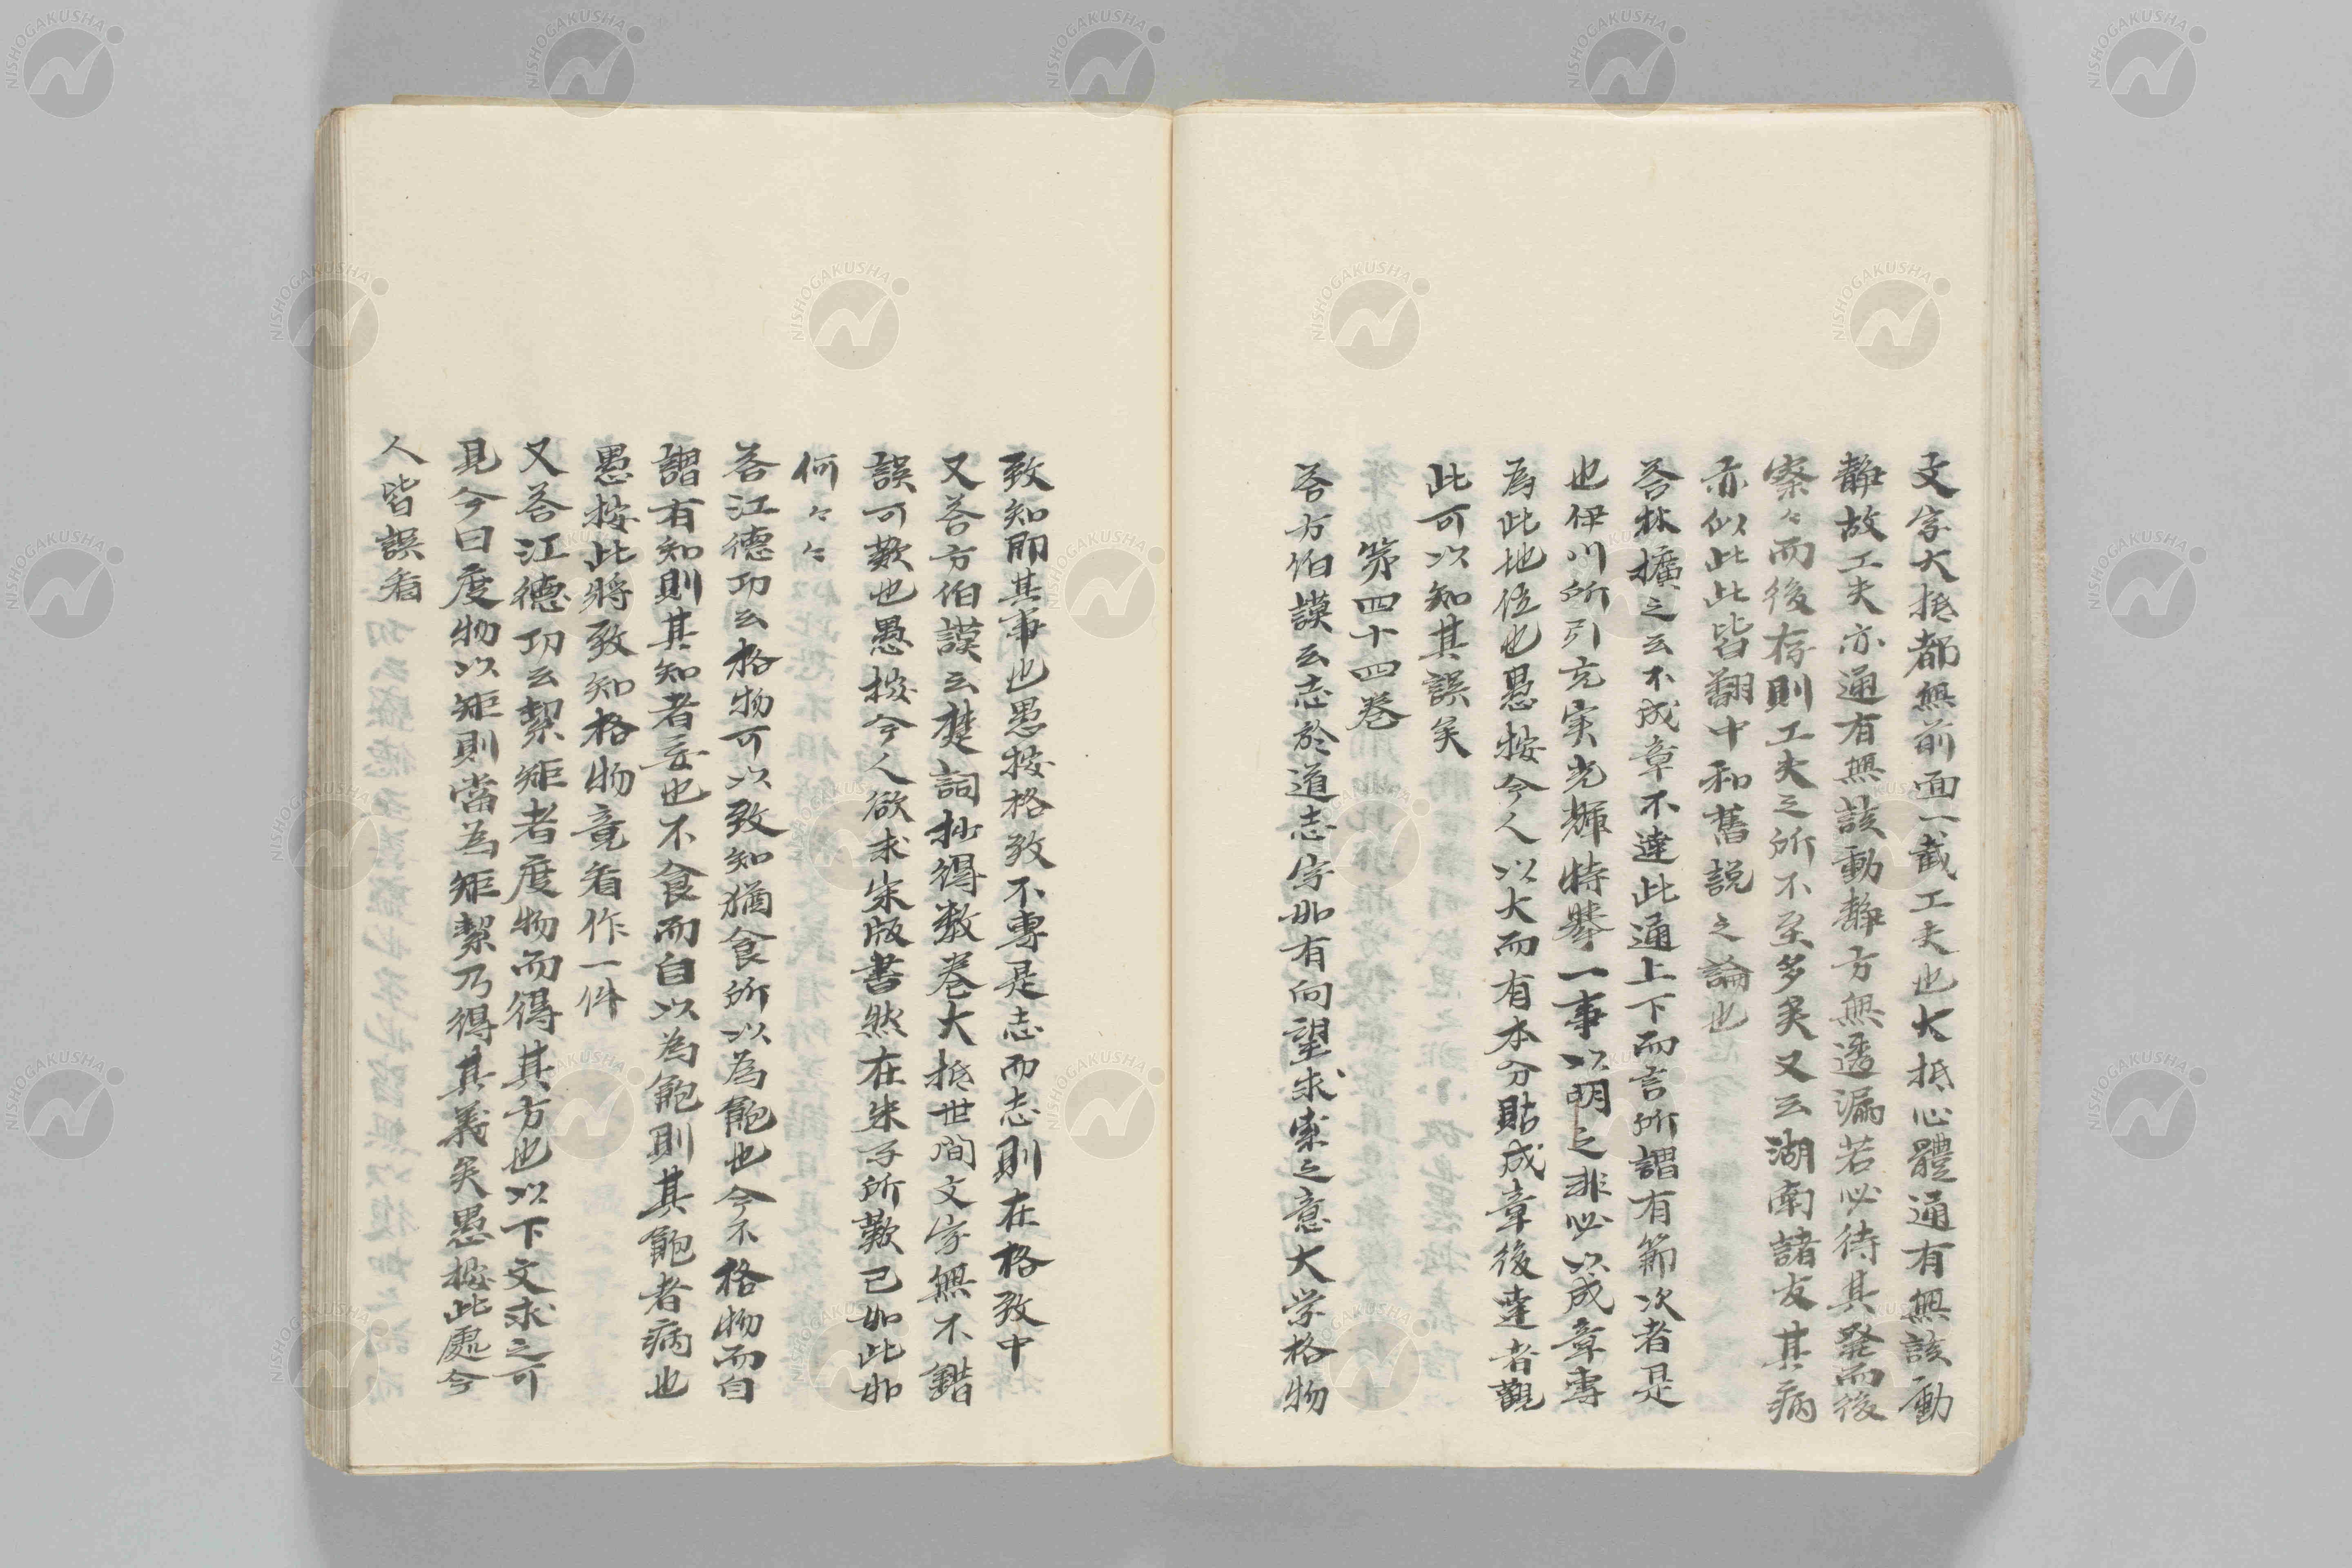 文字大抵都無前面一截工夫也大抵心體通有無該動
静故工夫亦通有無該動静方無透漏若必待其発而後
察々而後存則工夫之所不至多矣又云湖南諸友其病
亦似此此皆翻中和舊説之論也
答林擴之云不成章不達此通上下而言所謂有節次者是
也伊川所引充実光輝特挙一事以明之非必以成章専
為此地位也愚按今人以大而有本分貼成章後達者観
此可以知其誤矣
第四十四巻
答方伯謨云志於道志字如有向望求索之意大学格物
致知即其事也愚按格致不專是志而志則在格致中
又答方伯謨云楚詞抄得数巻大抵世間文字無不錯
誤可歎也愚按今人欲求宋版書然在朱子所歎已如此如
何々々
答江德功云格物可以致知猶食所以為飽也今不格物而自
謂有知則其知者妄也不食而自以為飽則其飽者病也
愚按此將致知格物竟看作一件
又答江德功云絜矩者度物而得其方也以下文求之可
見今曰度物以矩則當為矩絜乃得其義矣愚按此處今
人皆誤看
NISHOGAKUSHA